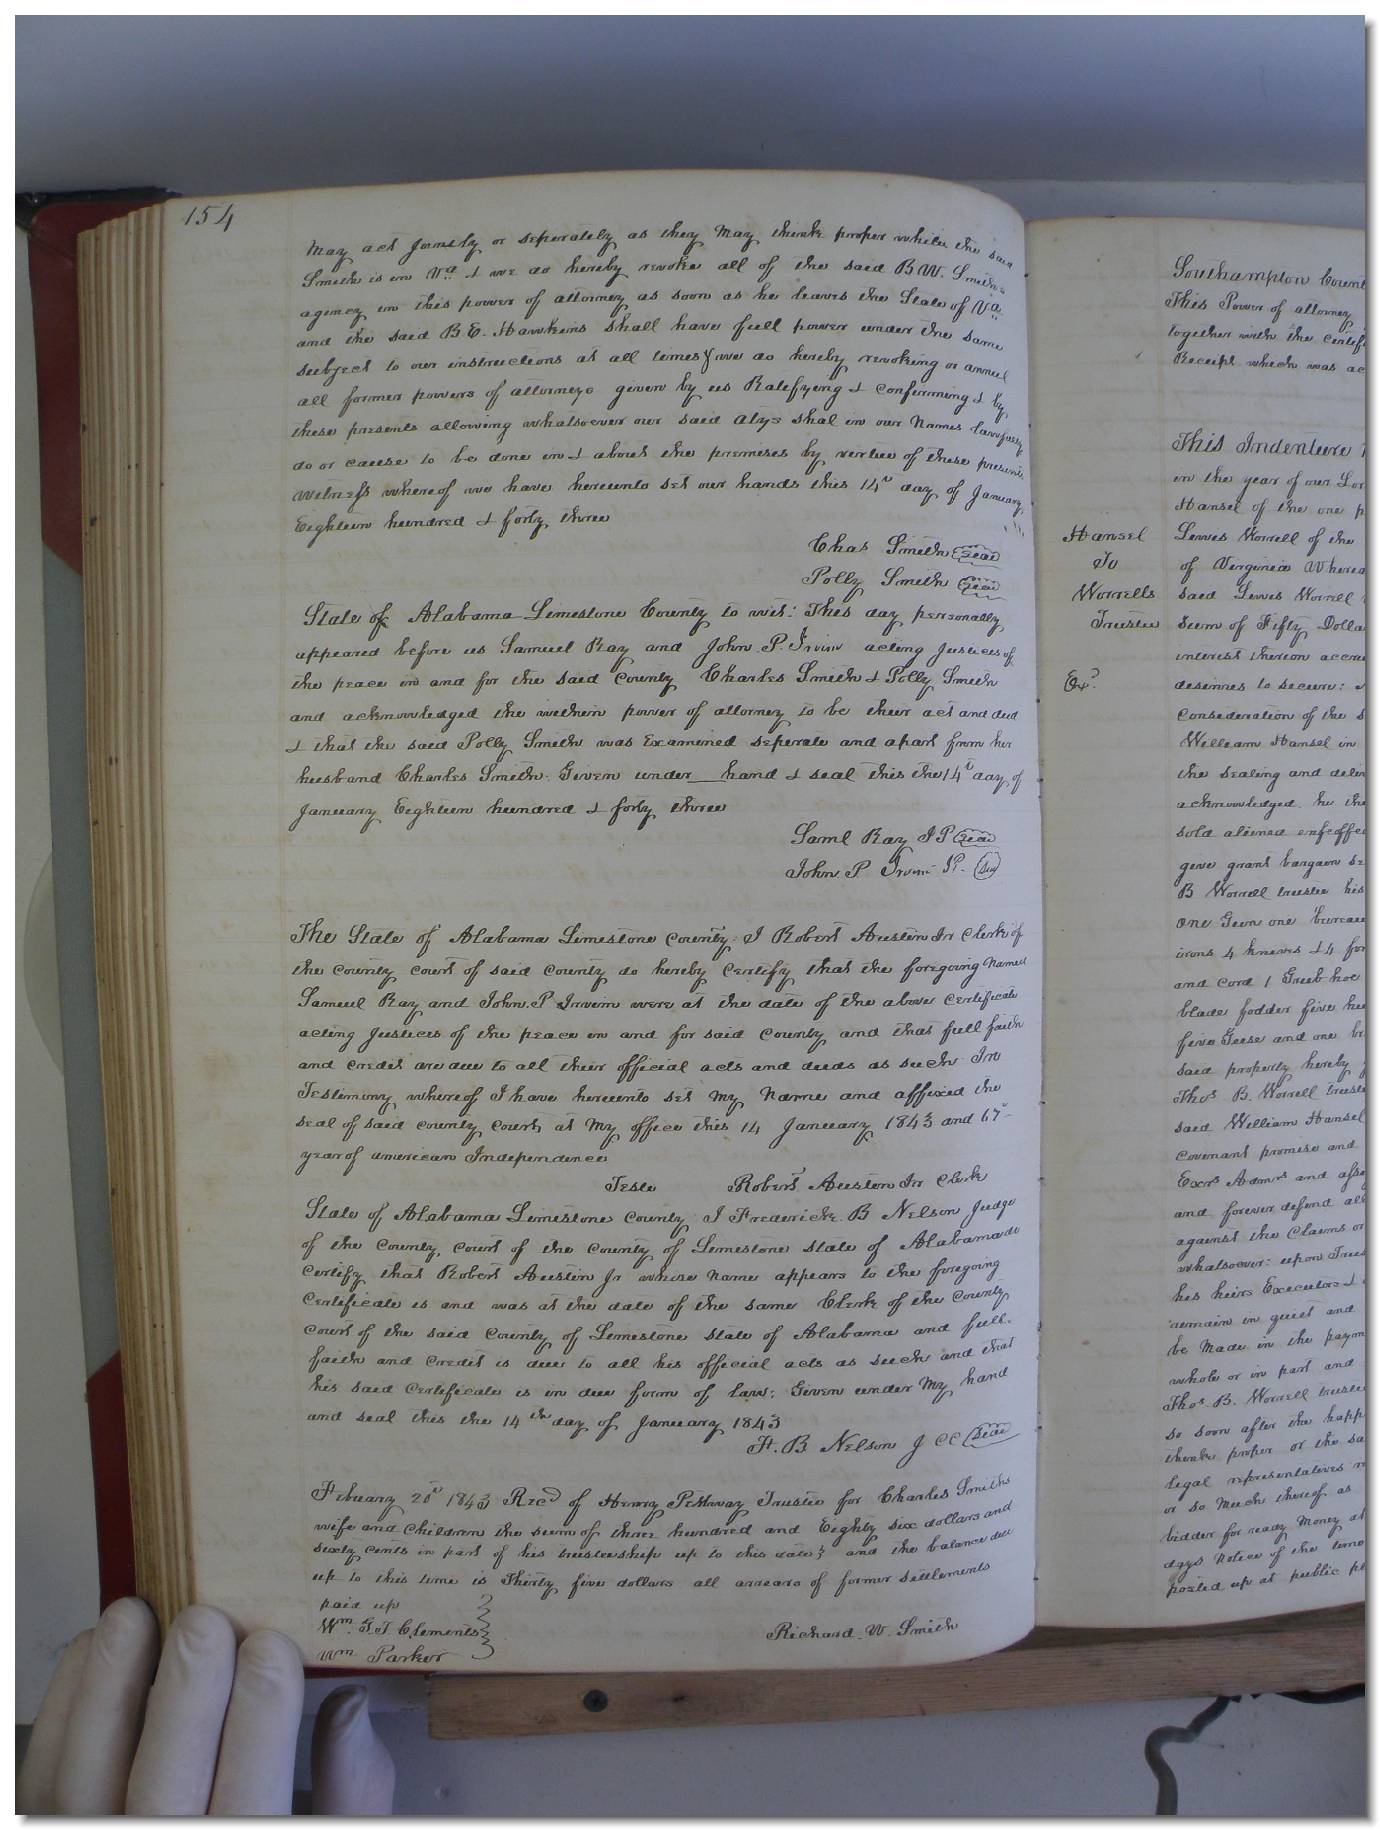 154
May act Jointly or seperately as they May think proper while the said
Smith is in Va & we do hereby revoke all of the said B W. Smiths
agency in this power of attorney as soon as he leaves the State of Va
and the said B E. Hawkins shall have full power under the same
subject to our instructions at all times & we do hereby revoking or annul
all former powers of attorneys given by us Ratifying & Confirming & by
these presents allowing whatsoever our said Atys shal in our Names lawfully
do or cause to be done in & about the premises by vertue of these presents
Witness whereof we have hereunto set our hands this 14th day of January
Eighteen hundred & forty three
Chas Smith Seal
Polly Smith Seal
State of Alabama Limestone County to wit: This day personally
appeared before us Samuel Ray and John. P. Irvin acting Justices of
the peace in and for the said County Charles Smith & Polly Smith
and acknowledged the within power of attorney to be their act and deed
& that the said Polly Smith was Examined seperate and apart from her
husband Charles Smith. Given under hand & seal this the 14th day of
January Eighteen hundred & forty three
Saml Ray J P Seal
John P Irvin J.P. Seal
The State of Alabama Limestone County. I Robert Austin Jr Clerk of
the County court of said County do hereby Certify that the foregoing Named
Samuel Ray and John. P Irvin were at the date of the above Certificate
acting Justices of the peace in and for said County and that full faith
and Credit are due to all their official acts and deeds as such In
Testimony whereof I have hereunto set My Name and affixed the
seal of said County Court, at My office this 14 January 1843 and 67th
year of american Independence
Teste Robert Austin Jr Clerk
State of Alabama Limestone County. I Frederick B Nelson Judge
of the County, Court of the County of Limestone State of Alabama do
Certify that Robert Austin Jr whose Name appears to the foregoing
Certificate is and was at the date of the same Clerk of the County
Court of the said County of Limestone State of Alabama and full
faith and Credit is due to all his official acts as such and that
his said Certificate is in due form of law: Given under My hand
and seal this the 14th day of January 1843
F. B Nelson J CC Seal
February 20th 1843 Recd of Henry Pettway Trustee for Charles Smiths
wife and Children the sum of three hundred and Eighty six dollars and
sixty cents in part of his trusteeship up to this date; and the balance due
up to this time is Thirty five dollars all arrears of former settlements
paid up
Wm. G. T Clements
Wm Parker
Richard. W. Smith
Southampton Count
This Power of attorney
together with the Certif
Receipt which was ac
This Indenture
in the year of our Lor
Hansel of the one p
Hansel
To
Worrells
Trustee
Exd.
Lewis Worrell of the
of Virginia Wherea
said Lewis Worrell
sum of Fifty Dolla
interest thereon accru
desirous to secure:
Consideration of the s
William Hansel in
the sealing and deliv
acknowledged he the
sold aliened enfeoffe
give grant bargain se
B Worrell trustee his
one Gun one bureau
irons 4 knives & 4 for
and cord 1 Grub hoe
blade fodder five hu
five Geese and one br
said property hereby
Thos B. Worrell truste
said William Hansel
Covenant promise and
Exrs Admrs and assi
and forever defend all
against the Claims or
whatsoever: upon Trus
his heirs Executors &
remain in quiet and
be Made in the paym
whole or in part and
Thos. B. Worrell trustee
so soon after the happ
think proper or the sa
legal representatives
or so Much thereof as
bidder for ready Money at
days Notice of the time
posted up at public pl